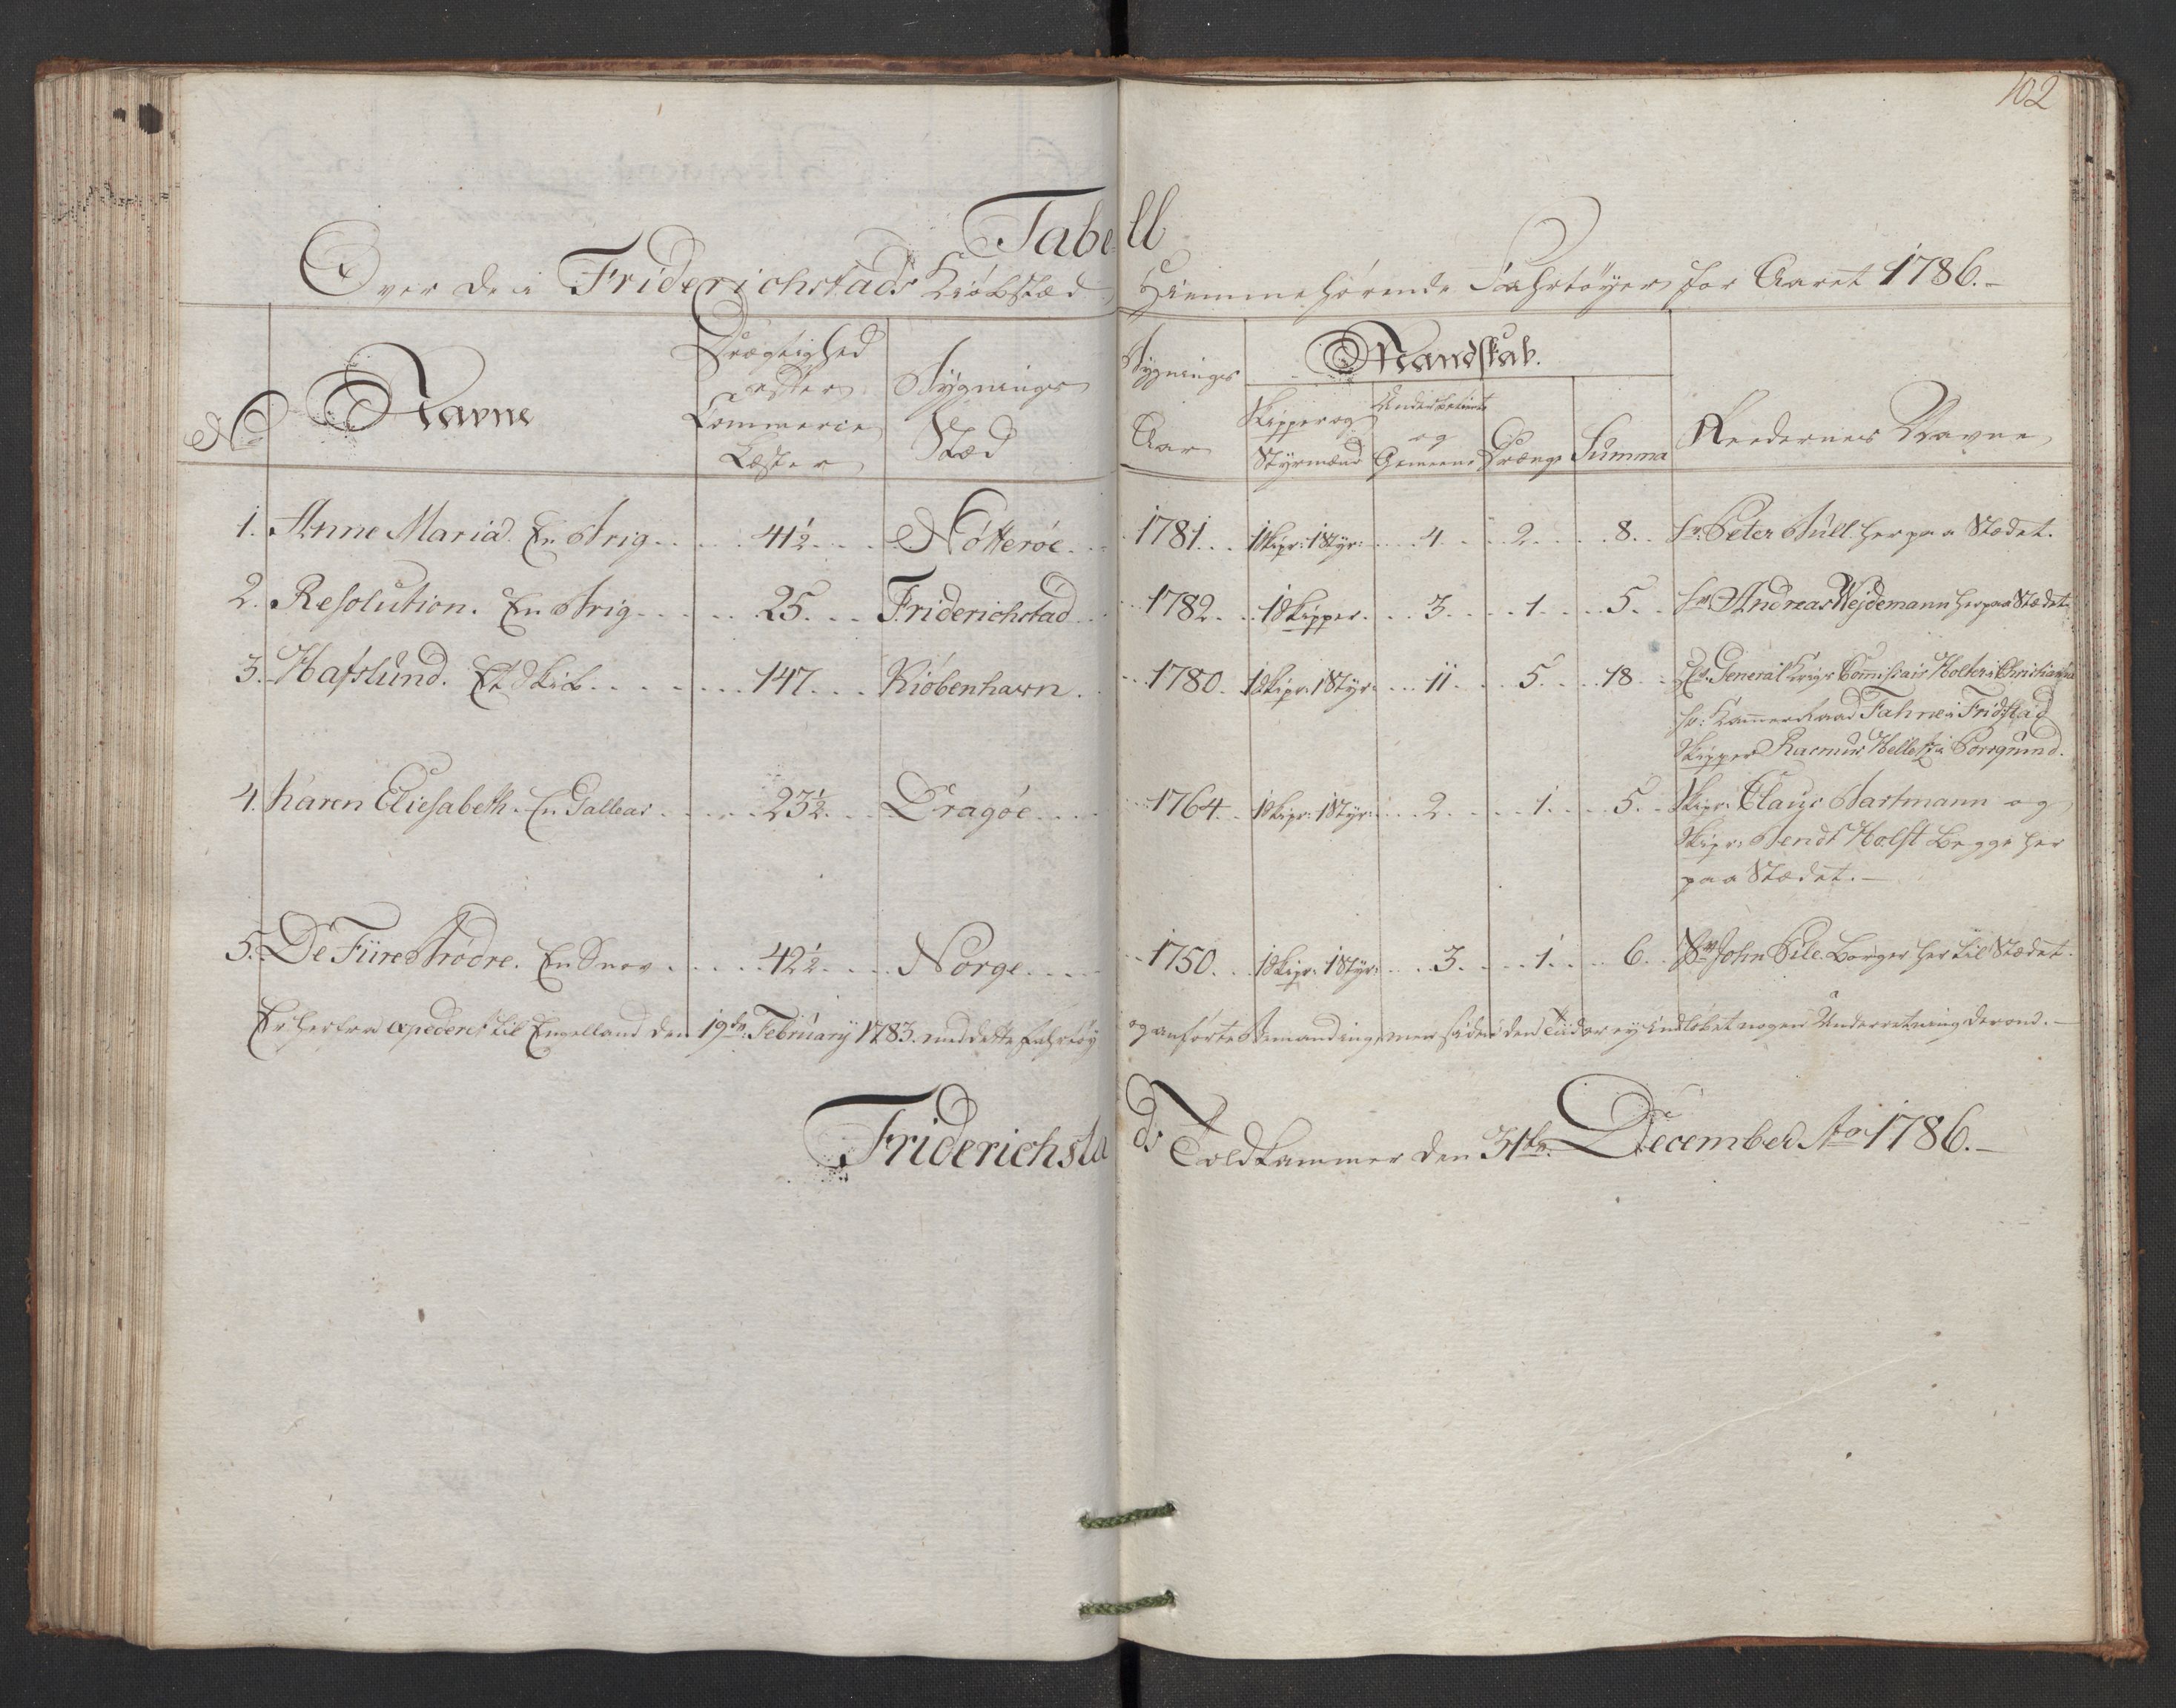 102
Tabell
Over de i Friderichstads Kiöbstæd Hiemmehörende Fahrtöyer for Aaret 1786.
No Navne Drægtighed efter Commerce Læster Bygnings Stæd Bygnings Aar Mandskab. Reedernes Navne
Skipper og Styrmænd Underbetient og Gemeene Drænge Summa
1. Anne Maria. En Brig 41½ Nötteröe 1781 1 Skipr: 1 Styr: 4 2 8 Sr. Peter Büll. her paa Stædet.
2. Resolution. En Brig 25 Friderichstad 1782 1 Skipper 3 1 5 Sr. Andreas Wejdemann her paa Stædet
3. Hafslund. Et Skib 147 Kiöbenhavn 1780 1 Skipr: 1 Styr: 11 5 18 Hr. General Krigs Commissair Holter i Christiania
Hr: Kammerraad Fahne i Fridstad
Skipper Rasmus i Porsgrund.
4. Karen Eliesabeth. En Galleas 23½ Dragöe 1764 1 Skipr: 1 Styr: 2 1 5 Skipr: Clauss Bartmann og
Skipr: Bendt Holst begge her
paa Stædet.
5. De Fiire Brödre. En Snov 42½ Norge 1750 1 Skipr: 1 Styr: 3 1 6 Sr. John Pile. Borger her til Stædet.
Er herfra expederet til Engelland den 19de Februarij 1783. med dette Fahrtöy og anförte Bemanding, men siden den Tiid er ey indlöbet nogen Underretning derom.
Friderichstads Toldkammer den 31te December Ao 1786.